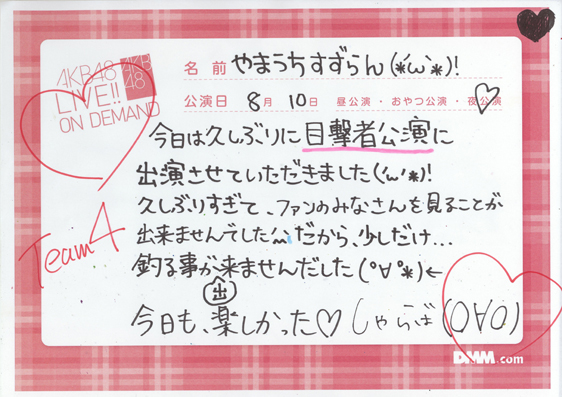 AKB48
LIVE!!
ON DEMAND
AKB
48
名前 やまうちすずらん(*'ω'*)!
公演日 8月 10日 昼公演・おやつ公演・夜公演
今日は久しぶりに目撃者公演に
出演させていただきました('ω'*)!
久しぶりすぎて、ファンのみなさんを見ることが
出来ませんでした^^;だから、少しだけ…
釣る事が来ませんだした(°∀°*)←
出
今日も、楽しかった♡ しゃらば(O∀O)
Team4
DMM.com